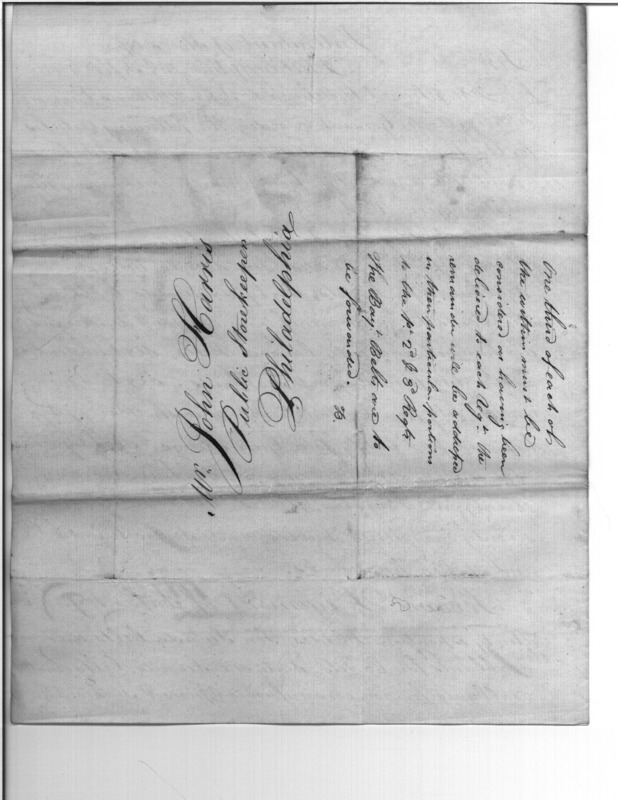 One third of each of
the within must be
considered as having been
delivered to each Regt. The
remainder will be addressed
in their particular portions
to the 1st 2d & 3d Regts
The Bayt Belts are to
be forwarded. B.
Mr John Harris
Public Storekeeper
Philadelphia